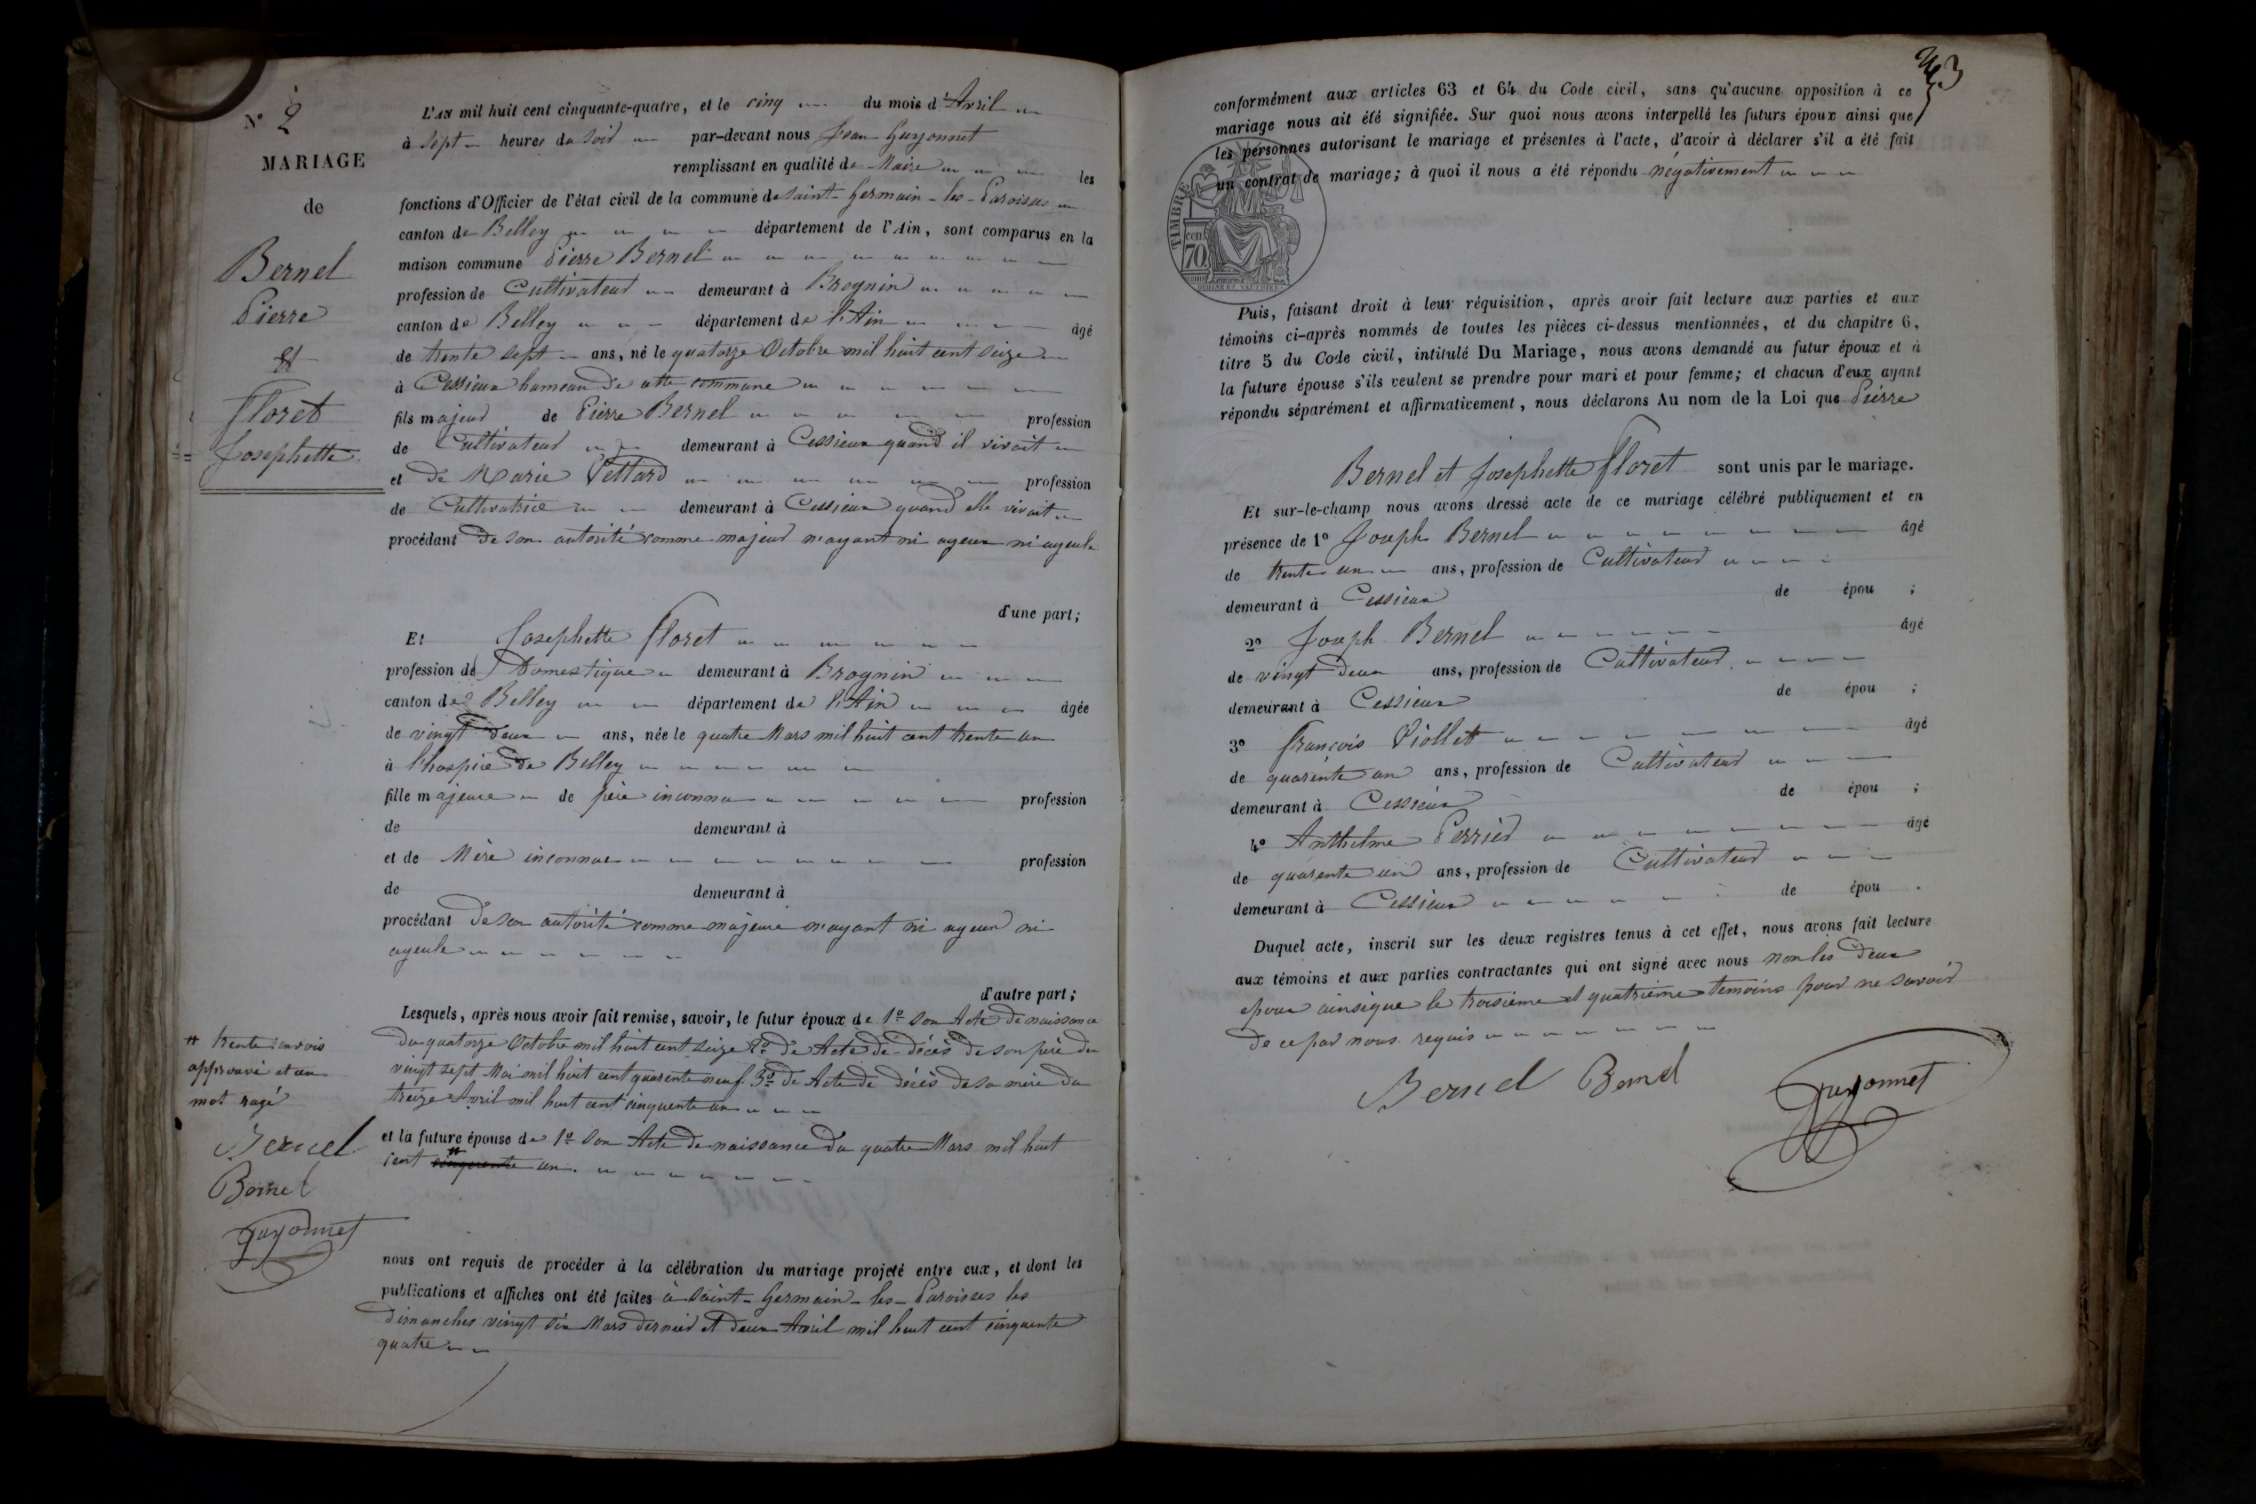 N° 2
MARIAGE
de
Bernel
Pierre
et
Floret
Josephette
L'AN mil huit cent cinquante-quatre, et le cinq du mois d'Avril
à sept heures du soir par-devant nous Jean Guyonnet
remplissant en qualité de Maire les
fonctions d'Officier de l'état civil de la commune de Saint-Germain-les-Paroisses
canton de Belley département de l'Ain, sont comparus en la
maison commune Pierre Bernel
profession de Cultivateur demeurant à Brognin
canton de Belley département de l'Ain âgé
de trente sept ans, né le quatorze Octobre mil huit cent seize
à Cessieux hameau de cette commune
fils majeur de Pierre Bernel profession
de Cultivateur demeurant à Cessieux quand il vivait
et de Marie Vettard profession
de Cultivatrice demeurant à Cessieux quand elle vivait
procédant de son autorité comme majeur n'ayant ni ayeux ni ayeule
d'une part;
Et Josephette Floret
profession de Domestique demeurant à Brognin
canton de Belley département de l'Ain âgée
de vingt deux ans, née le quatre Mars mil huit cent trente un
à l'hospice de Belley
fille majeure de père inconnu profession
de demeurant à
et de Mère inconnue profession
de demeurant à
procédant de son autorité comme majeure n'ayant ni ayeux ni
ayeule
d'autre part;
Lesquels, après nous avoir fait remise, savoir, le futur époux de 1° son Acte de naissance
du quatorze Octobre mil huit cent seize 2° de Acte de décès de son père du
vingt sept Mai mil huit cent quarante neuf 3° de Acte de décès de sa mère du
treize Avril mil huit cent cinquante un
et la future épouse de 1° son Acte de naissance du quatre Mars mil huit
cent cinquante un.
# trente renvois
approuvé et un
mot rayé
Bernel
Bernel
Guyonnet
nous ont requis de procéder à la célébration du mariage projeté entre eux, et dont les
publications et affiches ont été faites à Saint-Germain-les-Paroisses les
dimanches vingt six Mars dernier et deux Avril mil huit cent cinquante
quatre
3
conformément aux articles 63 et 64 du Code civil, sans qu'aucune opposition à ce
mariage nous ait été signifiée. Sur quoi nous avons interpellé les futurs époux ainsi que
les personnes autorisant le mariage et présentes à l'acte, d'avoir à déclarer s'il a été fait
un contrat de mariage; à quoi il nous a été répondu négativement
TIMBRE
70
Puis, faisant droit à leur réquisition, après avoir fait lecture aux parties et aux
témoins ci-après nommés de toutes les pièces ci-dessus mentionnées, et du chapitre 6,
titre 5 du Code civil, intitulé Du Mariage, nous avons demandé au futur époux et à
la future épouse s'ils veulent se prendre pour mari et pour femme; et chacun d'eux ayant
répondu séparément et affirmativement, nous déclarons Au nom de la Loi que Pierre
Bernel et Josephette Floret sont unis par le mariage.
Et sur-le-champ nous avons dressé acte de ce mariage célébré publiquement et en
présence de 1° Joseph Bernel âgé
de trente un ans, profession de Cultivateur
demeurant à Cessieux de épou ;
2° Joseph Bernel âgé
de vingt deux ans, profession de Cultivateur
demeurant à Cessieux de épou ;
3° François Viollet âgé
de quarente un ans, profession de Cultivateur
demeurant à Cessieux de épou ;
4° Anthelme Perrier âgé
de quarente un ans, profession de Cultivateur
demeurant à Cessieux de épou .
Duquel acte, inscrit sur les deux registres tenus à cet effet, nous avons fait lecture
aux témoins et aux parties contractantes qui ont signé avec nous non les deux
epoux ainsique le troisième et quatrième temoins pour ne savoir
de ce par nous requis
Bernel Bernel Guyonnet